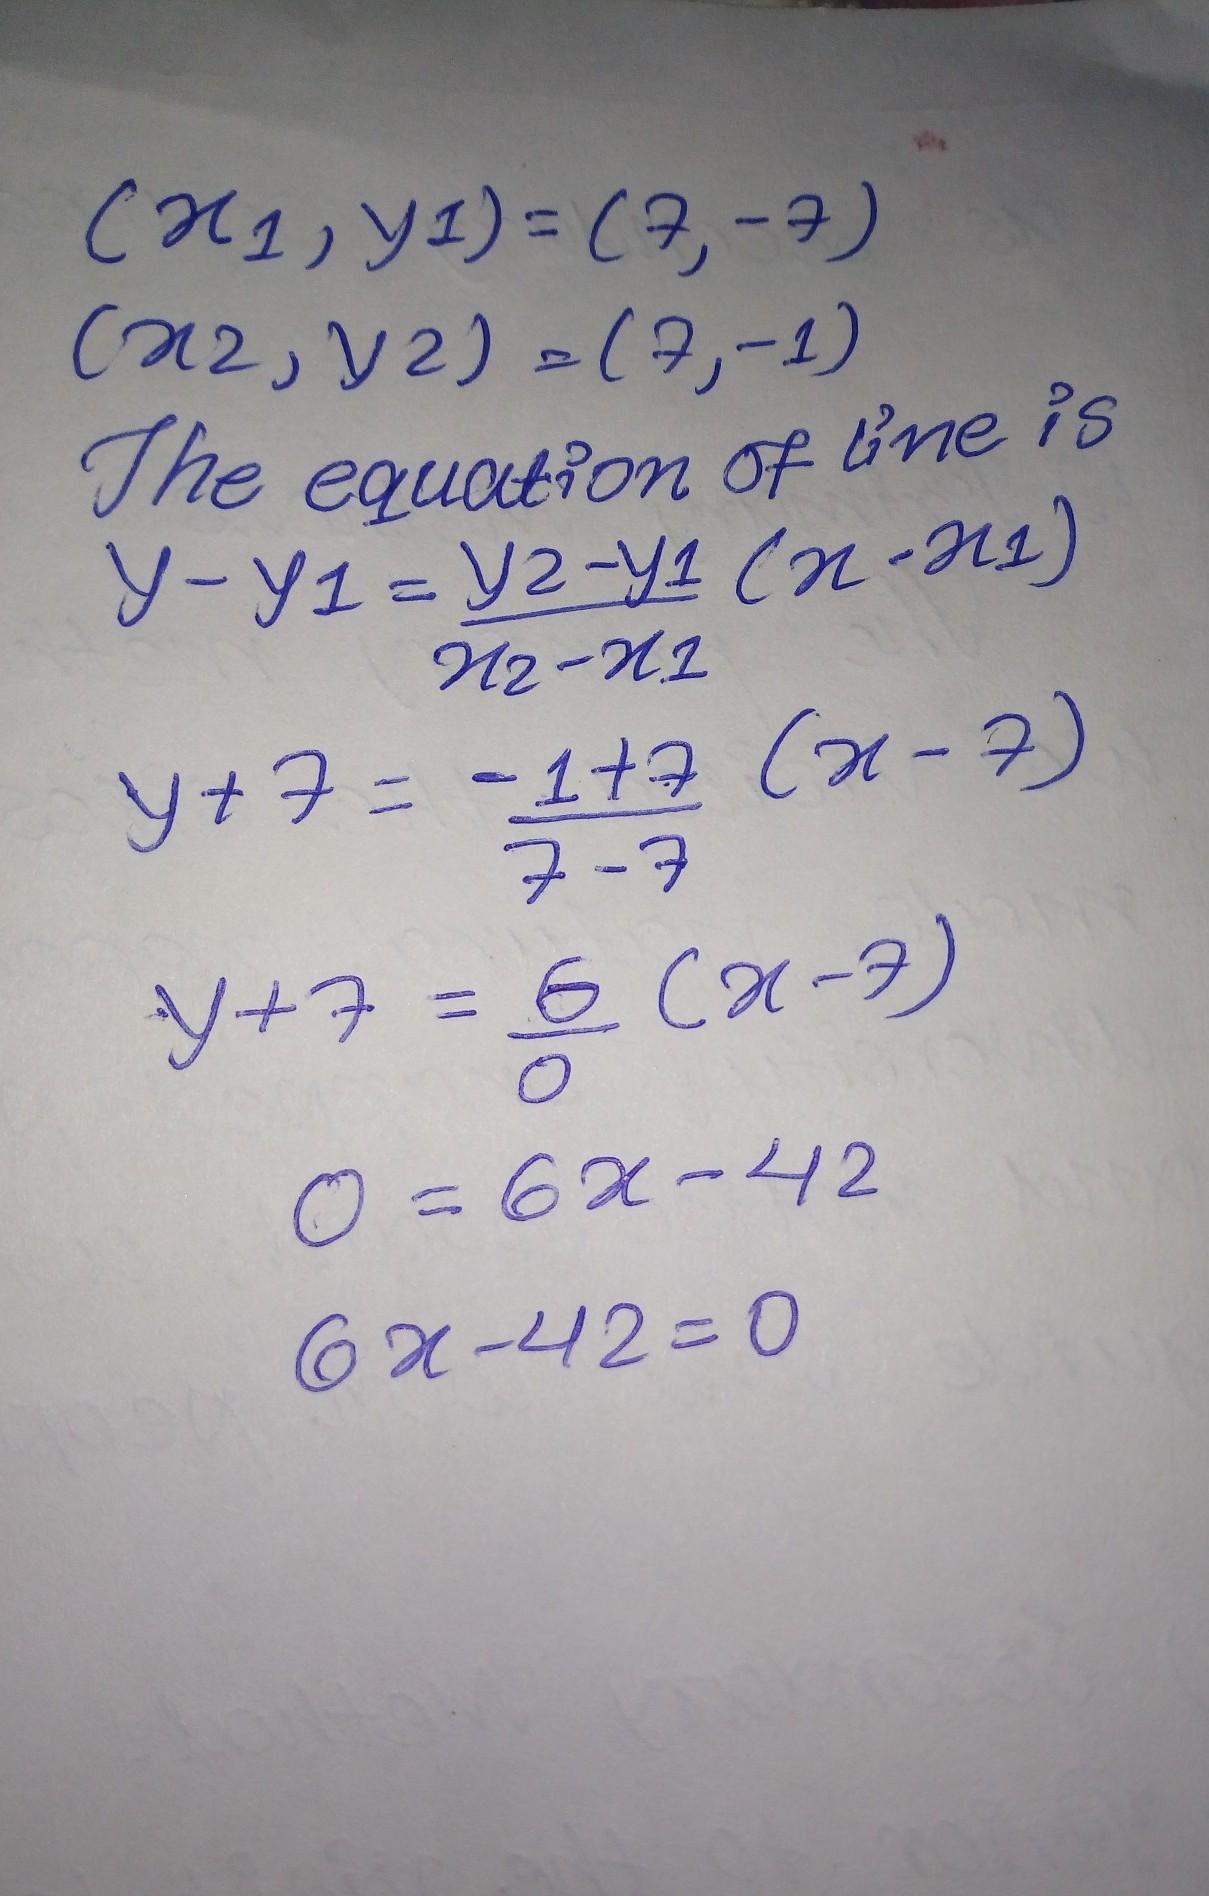 (x1, y1) = (7, -7)
(x2, y2) = (7, -1)
The equation of line is
y - y1 = y2 - y1 (x - x1)
x2 - x1
y + 7 = -1 + 7 (x - 7)
7 - 7
y + 7 = 6 (x - 7)
0
0 = 6x - 42
6x - 42 = 0